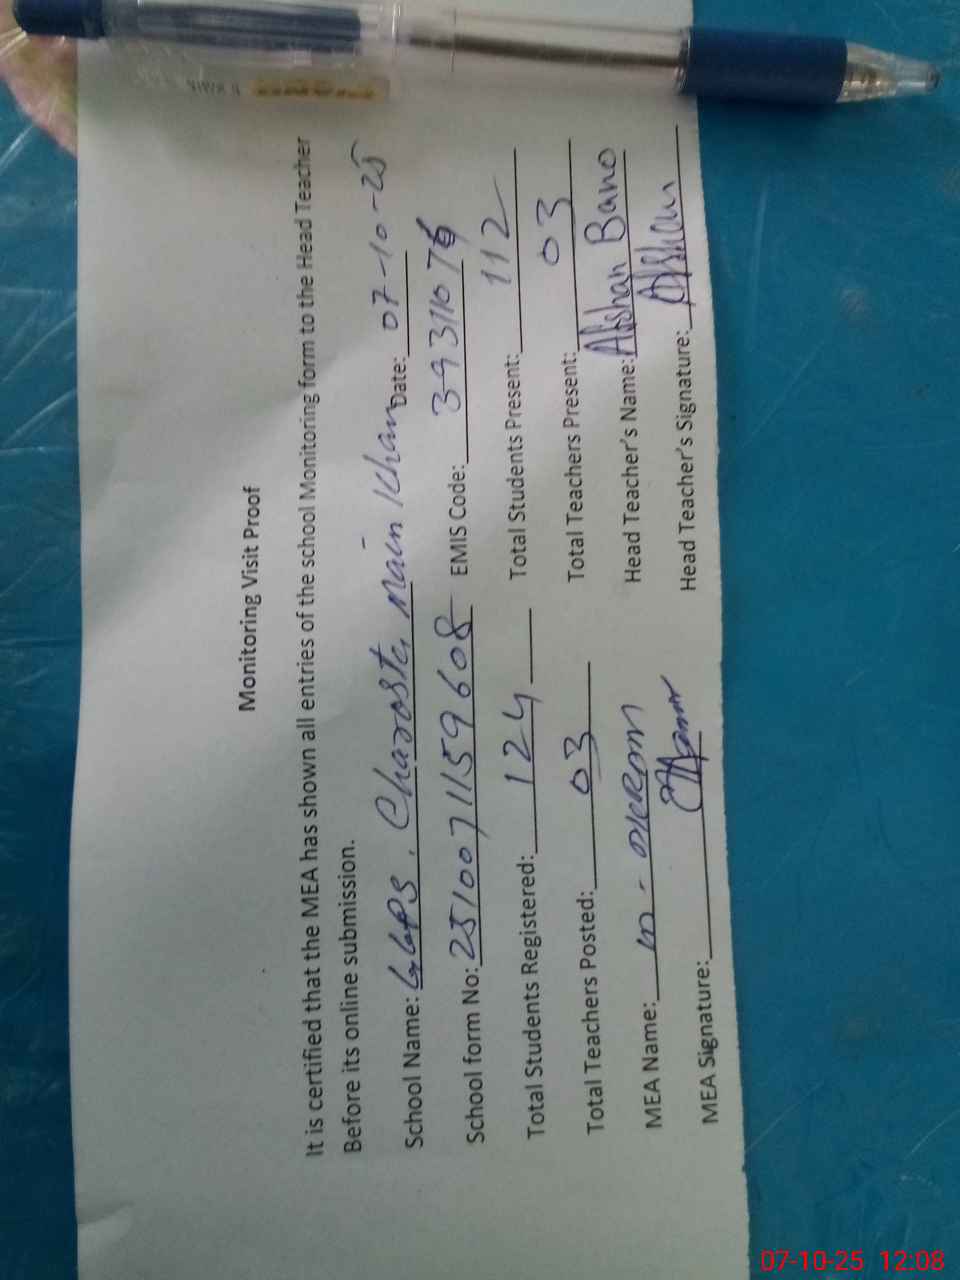 Monitoring Visit Proof
It is certified that the MEA has shown all entries of the school Monitoring form to the Head Teacher
Before its online submission.
School Name: GGPS. Charosta Main Khan Date: 07-10-25
School form No: 2510071159608 EMIS Code: 39311076
Total Students Registered: 124 Total Students Present: 112
Total Teachers Posted: 03 Total Teachers Present: 03
MEA Name: M. Head Teacher's Name: Afshan Bano
MEA Signature: Head Teacher's Signature: Afshan
07-10-25 12:08